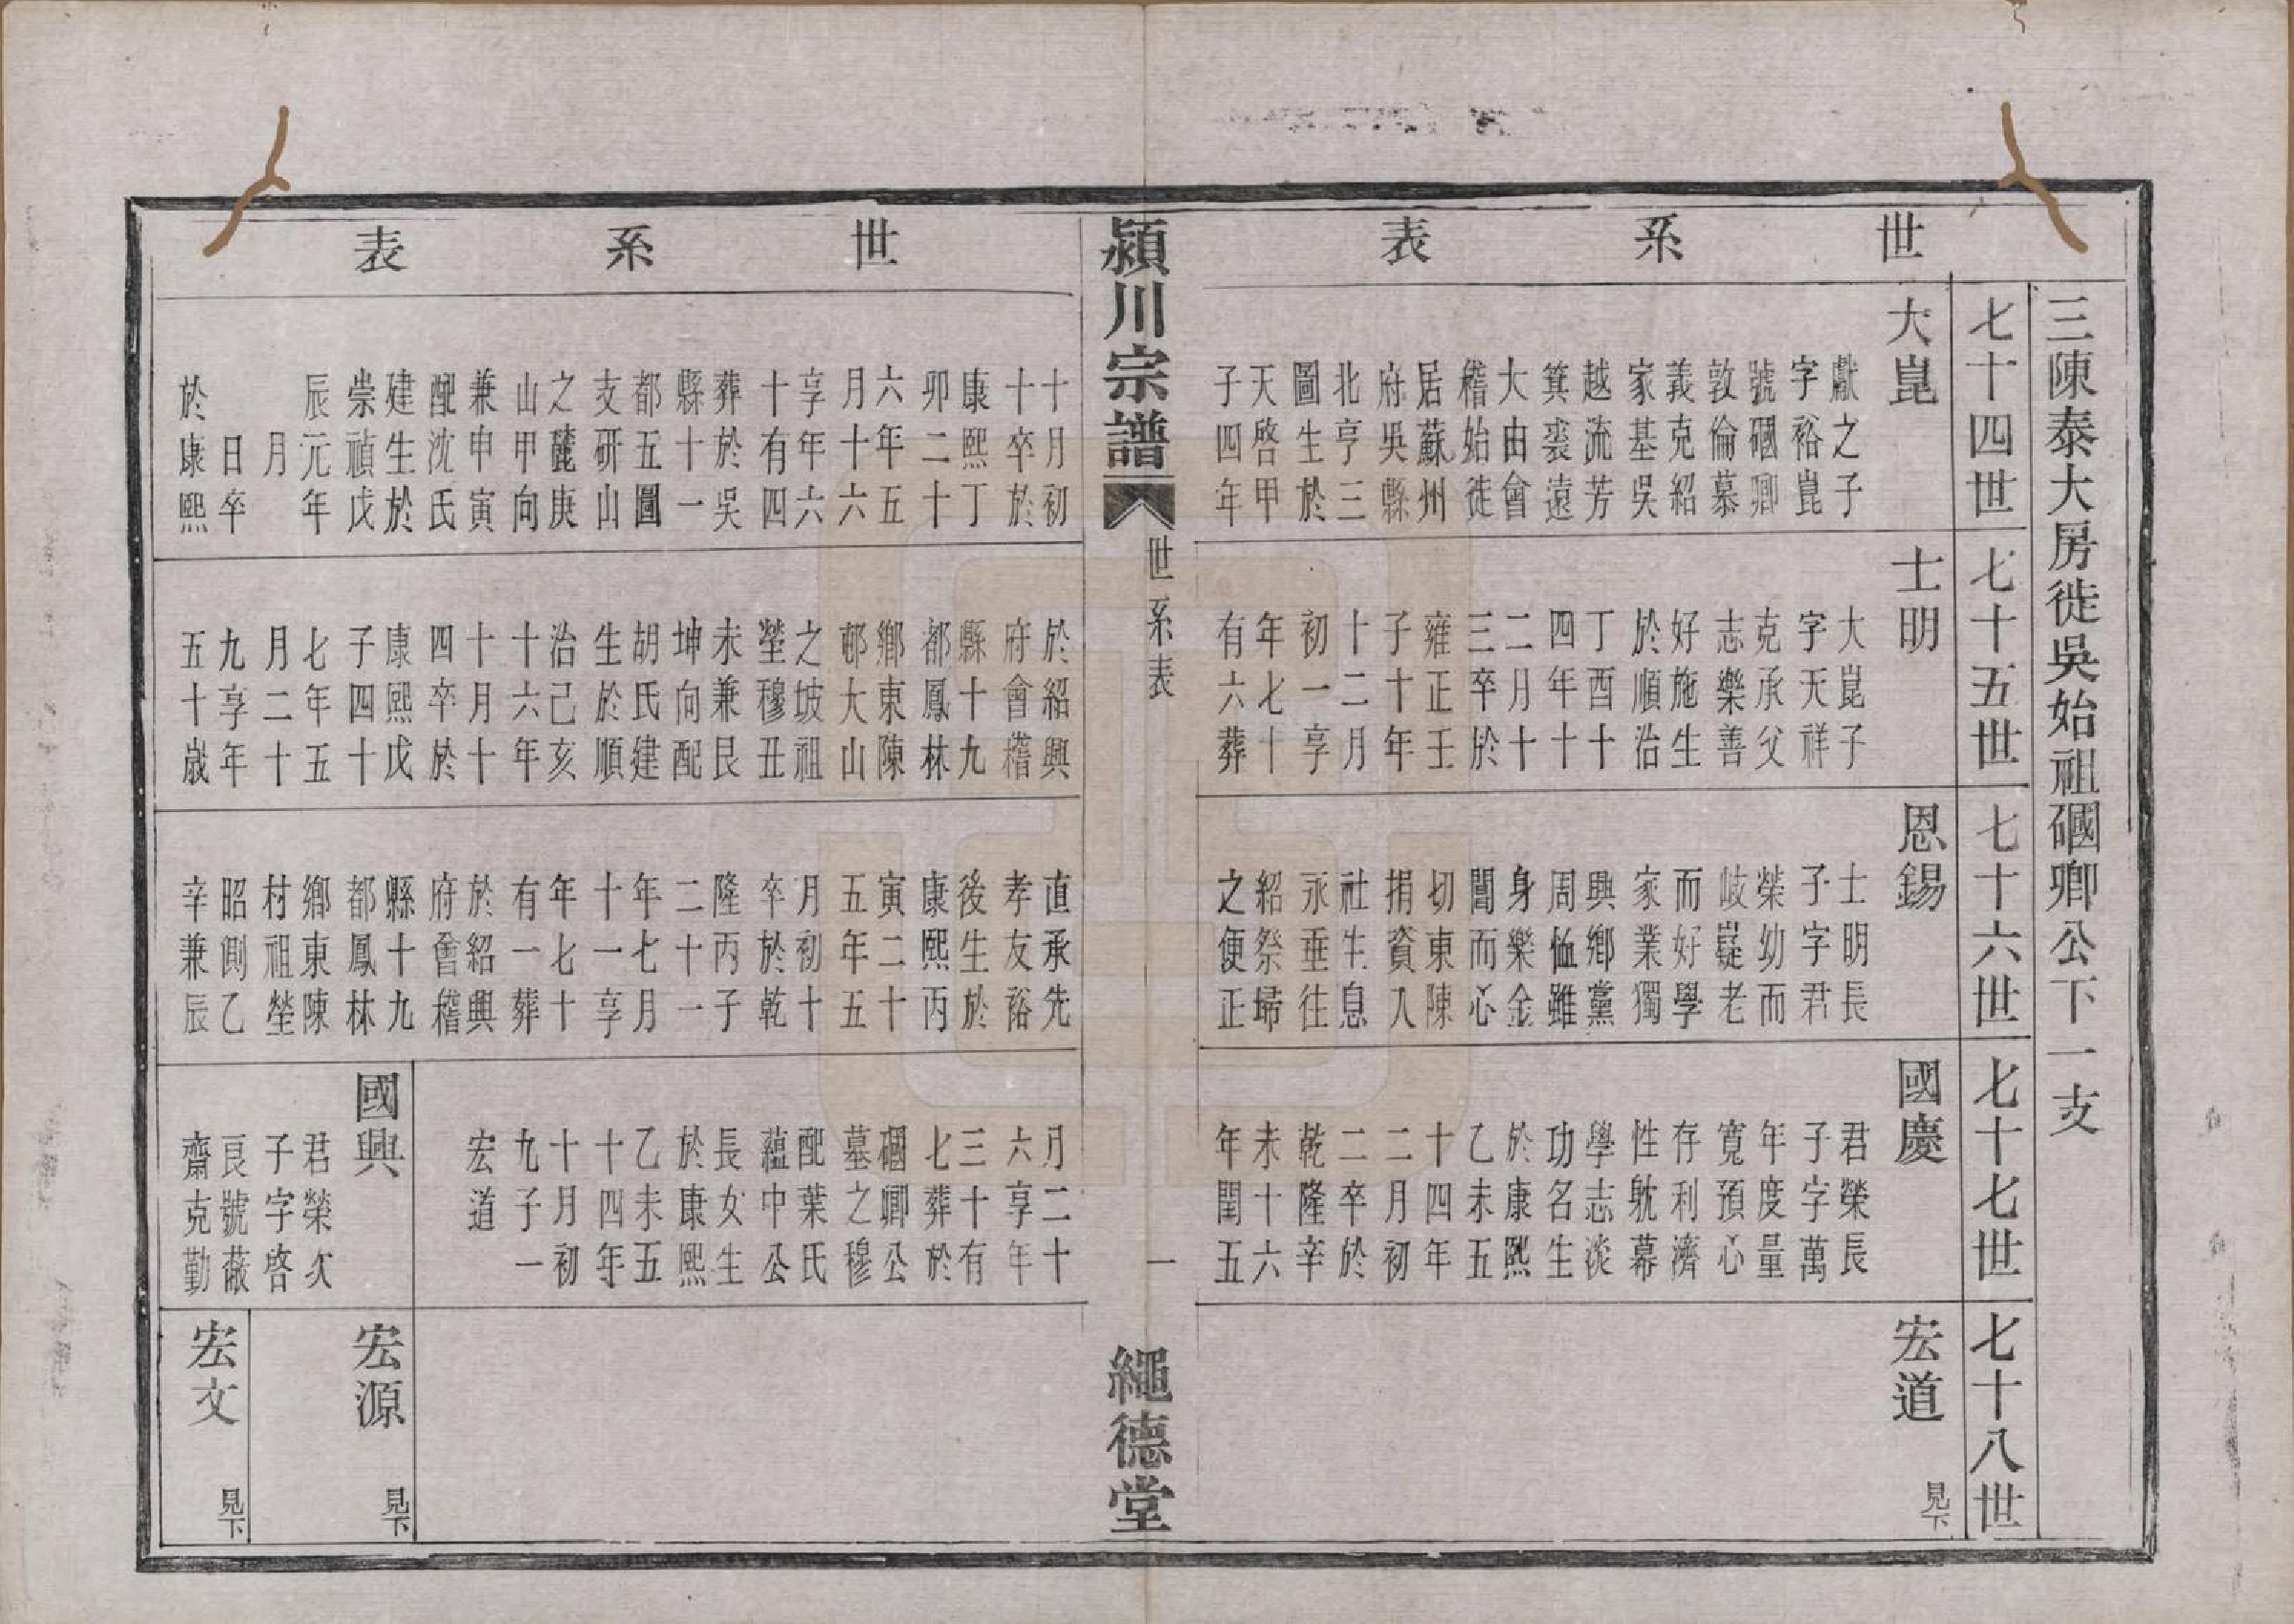 世系表
三陳泰大房徙吳始祖卿公下一支
七十四世
七十五世
七十六世
七十七世
七十八世
大崑
獻之子
字裕崑
號卿
敦倫慕
義克紹
家基吳
越流芳
箕裘遠
大由會
稽始徙
居蘇州
府吳縣
北亨三
圖生於
天啓甲
子四年
士明
大崑子
字天祥
克承父
志樂善
好施生
於順治
丁酉十
四年十
二月十
三卒於
雍正壬
子十年
十二月
初一享
年七十
有六葬
恩錫
士明長
子字君
榮幼而
岐嶷老
而好學
家業獨
興鄉黨
周恤雖
身樂金
閶而心
切東陳
捐資入
社生息
永垂往
紹祭埽
之便正
國慶
君榮長
子字萬
年度量
寬預心
存利濟
性躭幕
學志淡
功名生
於康熙
乙未五
十四年
二月初
二卒於
乾隆辛
未十六
年閏五
宏道
見下
潁川宗譜
世系表
一
繩德堂
世系表
十月初
十卒於
康熙丁
卯二十
六年五
月十六
享年六
十有四
葬於吳
縣十一
都五圖
支硏山
之麓庚
山甲向
兼申寅
配沈氏
建生於
崇禎戊
辰元年
月
日卒
於康熙
於紹興
府會稽
縣十九
都鳳林
鄉東陳
邨大山
之坡祖
塋穆丑
未兼艮
坤向配
胡氏建
生於順
治己亥
十六年
十月十
四卒於
康熙戊
子四十
七年五
月二十
九享年
五十歲
直承先
孝友裕
後生於
康熙丙
寅二十
五年五
月初十
卒於乾
隆丙子
二十一
年七月
十一享
年七十
有一葬
於紹興
府會稽
縣十九
都鳳林
鄉東陳
村祖塋
昭側乙
辛兼辰
月二十
六享年
三十有
七葬於
卿公
墓之穆
配葉氏
蘊中公
長女生
於康熙
乙未五
十四年
十月初
九子一
宏道
國興
君榮次
子字啓
良號蔽
齋克勤
宏源
見下
宏文
見下